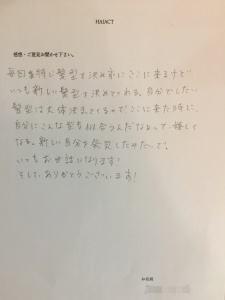 HAIACT
感想・ご意見お聞かせ下さい。
毎回特に髪型を決めずにここに来るけど
いつも新しい髪型を決めてくれる。自分でしたい
髪型は大体決まってるのでここに来た時に、
自分にこんな型も似合うんだなぁって、嬉しく
なる。新しい自分を発見したみたいで。
いつもお世話になります!
そして、ありがとうございます!
お名前